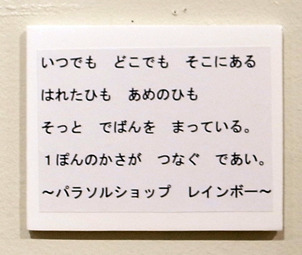 いつでも　どこでも　そこにある
はれたひも　あめのひも
そっと　でばんを　まっている。
１ぽんのかさが　つなぐ　であい。
～パラソルショップ　レインボー～